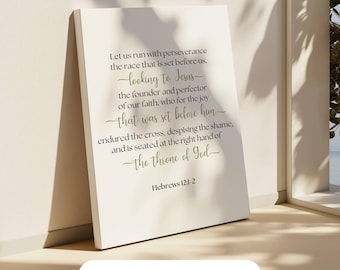 Let us run with perseverance
the race that is set before us,
looking to Jesus
the founder and perfector
of our faith, who for the joy
that was set before him
endured the cross, despising the shame,
and is seated at the right hand of
the throne of God
Hebrews 12:1-2